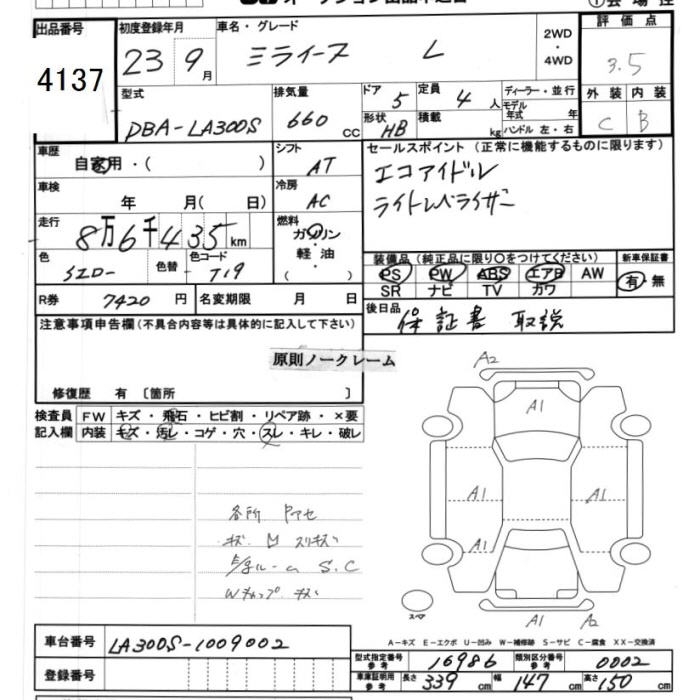 出品番号
4137
初度登録年月
23 9月
車名・グレード
ミライース L
2WD
・
4WD
評価点
3.5
外装 内装
C B
型式
DBA-LA300S
排気量
660 cc
ドア 5
定員 4 人
形状 HB
積載 kg
ディーラー・並行
モデル
年式 年
ハンドル 左・右
車歴
自家用・( )
シフト
AT
セールスポイント（正常に機能するものに限ります）
エコアイドル
ライトレベライザー
車検
年 月( 日)
冷房
AC
走行
8万6千435km
燃料
ガソリン
・
軽油
( )
色
色替
色コード
T19
装備品（純正品に限り○をつけてください）
PS PW ABS エアB AW
SR ナビ TV カワ
新車保証書
有・無
R券 7420 円
名変期限 月 日
後日品 保証書 取説
注意事項申告欄（不具合内容等は具体的に記入して下さい）
原則ノークレーム
修復歴 有〔箇所 〕
検査員
記入欄
FW キズ・飛石・ヒビ割・リペア跡・×要
内装 キズ・汚レ・コゲ・穴・スレ・キレ・破レ
各所
キズ M スリキズ
S.C
Wキャップ キズ
A2
A1
A1
A1
A1
A1
A2
スペア
A-キズ E-エクボ U-凹み W-補修跡 S-サビ C-腐食 XX-交換済
車台番号 LA300S-1009002
登録番号
型式指定番号
参考
16986
類別区分番号
参考
0002
車庫証明用
参考
長さ 339 cm 幅 147 cm 高さ 150 cm